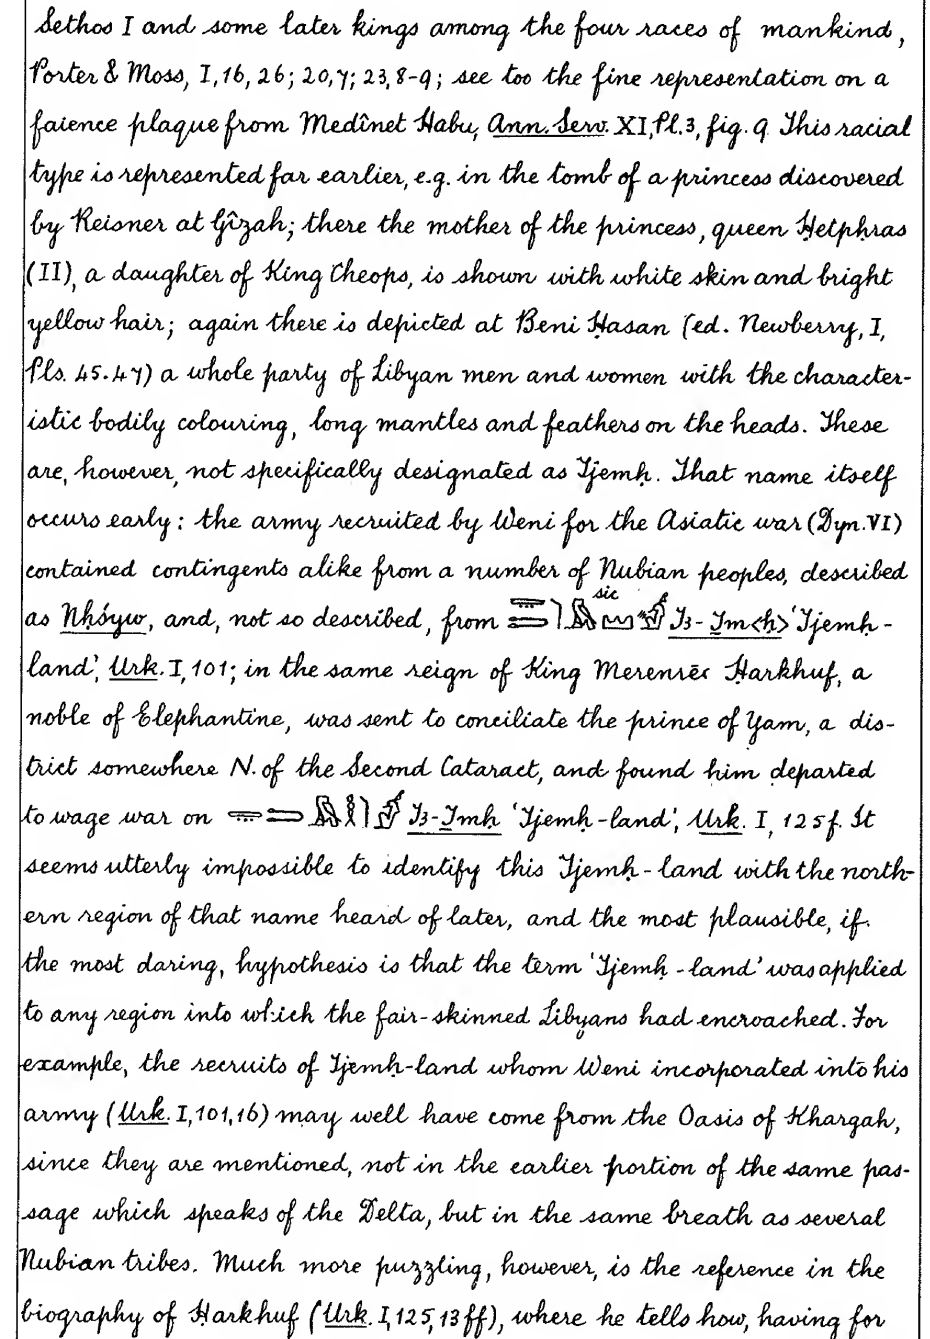 Sethos I and some later kings among the four races of mankind,
Porter & Moss, I, 16, 26; 20, 7; 23, 8-9; see too the fine representation on a
faience plaque from Medînet Habu, Ann. Serv. XI, Pl. 3, fig. 9. This racial
type is represented far earlier, e.g. in the tomb of a princess discovered
by Reisner at Gîzah; there the mother of the princess, queen Ḥetpḥras
(II), a daughter of King Cheops, is shown with white skin and bright
yellow hair; again there is depicted at Beni Ḥasan (ed. Newberry, I,
Pls. 45. 47) a whole party of Libyan men and women with the character-
istic bodily colouring, long mantles and feathers on the heads. These
are, however, not specifically designated as Tjemḥ. That name itself
occurs early: the army recruited by Weni for the Asiatic war (Dyn. VI)
contained contingents alike from a number of Nubian peoples, described
sic
as Nḥśyw, and, not so described, from Tꜣ-Ṯm<ḥ> 'Tjemḥ-
land', Urk. I, 101; in the same reign of King Merenrēꜥ Ḥarkhuf, a
noble of Elephantine, was sent to conciliate the prince of Yam, a dis-
trict somewhere N. of the Second Cataract, and found him departed
to wage war on Tꜣ-Ṯmḥ 'Tjemḥ-land', Urk. I, 125 f. It
seems utterly impossible to identify this Tjemḥ-land with the north-
ern region of that name heard of later, and the most plausible, if
the most daring, hypothesis is that the term 'Tjemḥ-land' was applied
to any region into which the fair-skinned Libyans had encroached. For
example, the recruits of Tjemḥ-land whom Weni incorporated into his
army (Urk. I, 101, 16) may well have come from the Oasis of Khargah,
since they are mentioned, not in the earlier portion of the same pas-
sage which speaks of the Delta, but in the same breath as several
Nubian tribes. Much more puzzling, however, is the reference in the
biography of Ḥarkhuf (Urk. I, 125, 13 ff), where he tells how, having for